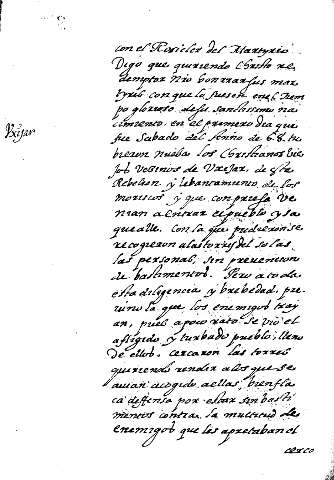 con el Rosicler del Martyrio
Digo que quiriendo Christo re
demptor nro honrrar sus mar
tyres con que la fuesen en el tiem
po glorioso de su sanctissimo na
cimiento, en el primero dia que
fue Sabado del Anno de 68. tu
bieron nueba los Christianos Vie
jos vecinos de Vxijar, de esta
Rebelion y lebantamiento de los
moriscos y que con priesa ve
nian a entrar el pueblo y sa
quealle. Con la que pudieron se
recogieron a las torres del solas
las personas, sin prevencion
de bastimentos. Pero a toda
esta diligencia y brebedad, pre
vino la que los enemigos tray
an, pues a poco rato se vio el
afligido y turbado pueblo, lleno
de ellos. cercaron las torres
quiriendo rendir a los que se
auian acogido a ellas, bien fla
ca deffensa por estar sin basti
mentos contra la multitud de
enemigos que les apretaban el
cerco
Vxijar